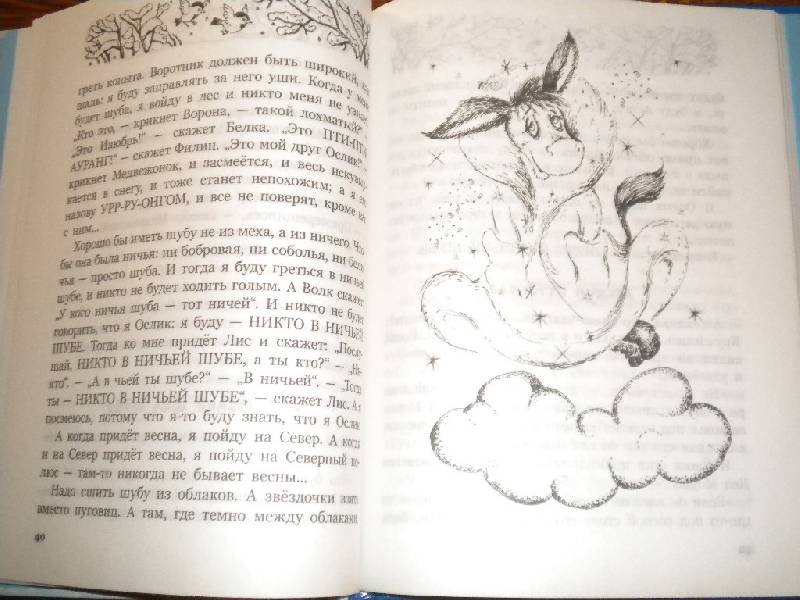 греть копыта. Воротник должен быть широкий,
шаль: я буду заправлять за него уши. Когда у
будет шуба, я войду в лес и никто меня не
„Кто это, — крикнет Ворона, — такой лохматый?“
„Это Изюбрь!“ — скажет Белка. „Это ПТИ-ПТИ-
АУРАНГ!“ — скажет Филин. „Это мой друг Ослик!“
крикнет Медвежонок, и засмеётся, и весь
кается в снегу, и тоже станет непохожим; а я
назову УРР-РУ-ОНГОМ, и все не поверят, кроме
с ним...
Хорошо бы иметь шубу не из меха, а из ничего
бы она была ничья: ни бобровая, ни соболья, ни
чья — просто шуба. И тогда я буду греться в ничьей
шубе, и никто не будет ходить голым. А Волк скажет:
„У кого ничья шуба — тот ничей“. И никто не
говорить, что я Ослик: я буду — НИКТО В НИЧЬЕЙ
ШУБЕ. Тогда ко мне придёт Лис и скажет:
НИКТО В НИЧЬЕЙ ШУБЕ, а ты кто?“ —
— „А в чьей ты шубе?“ — „В ничьей“. —
ты — НИКТО В НИЧЬЕЙ ШУБЕ“, — скажет Лис. А я
посмеюсь, потому что я-то буду знать, что я Ослик.
А когда придёт весна, я пойду на Север. А когда
и на Север придёт весна, я пойду на Северный по-
люс — там-то никогда не бывает весны...
Надо сшить шубу из облаков. А звёздочки взять
вместо пуговиц. А там, где темно между облаками
40